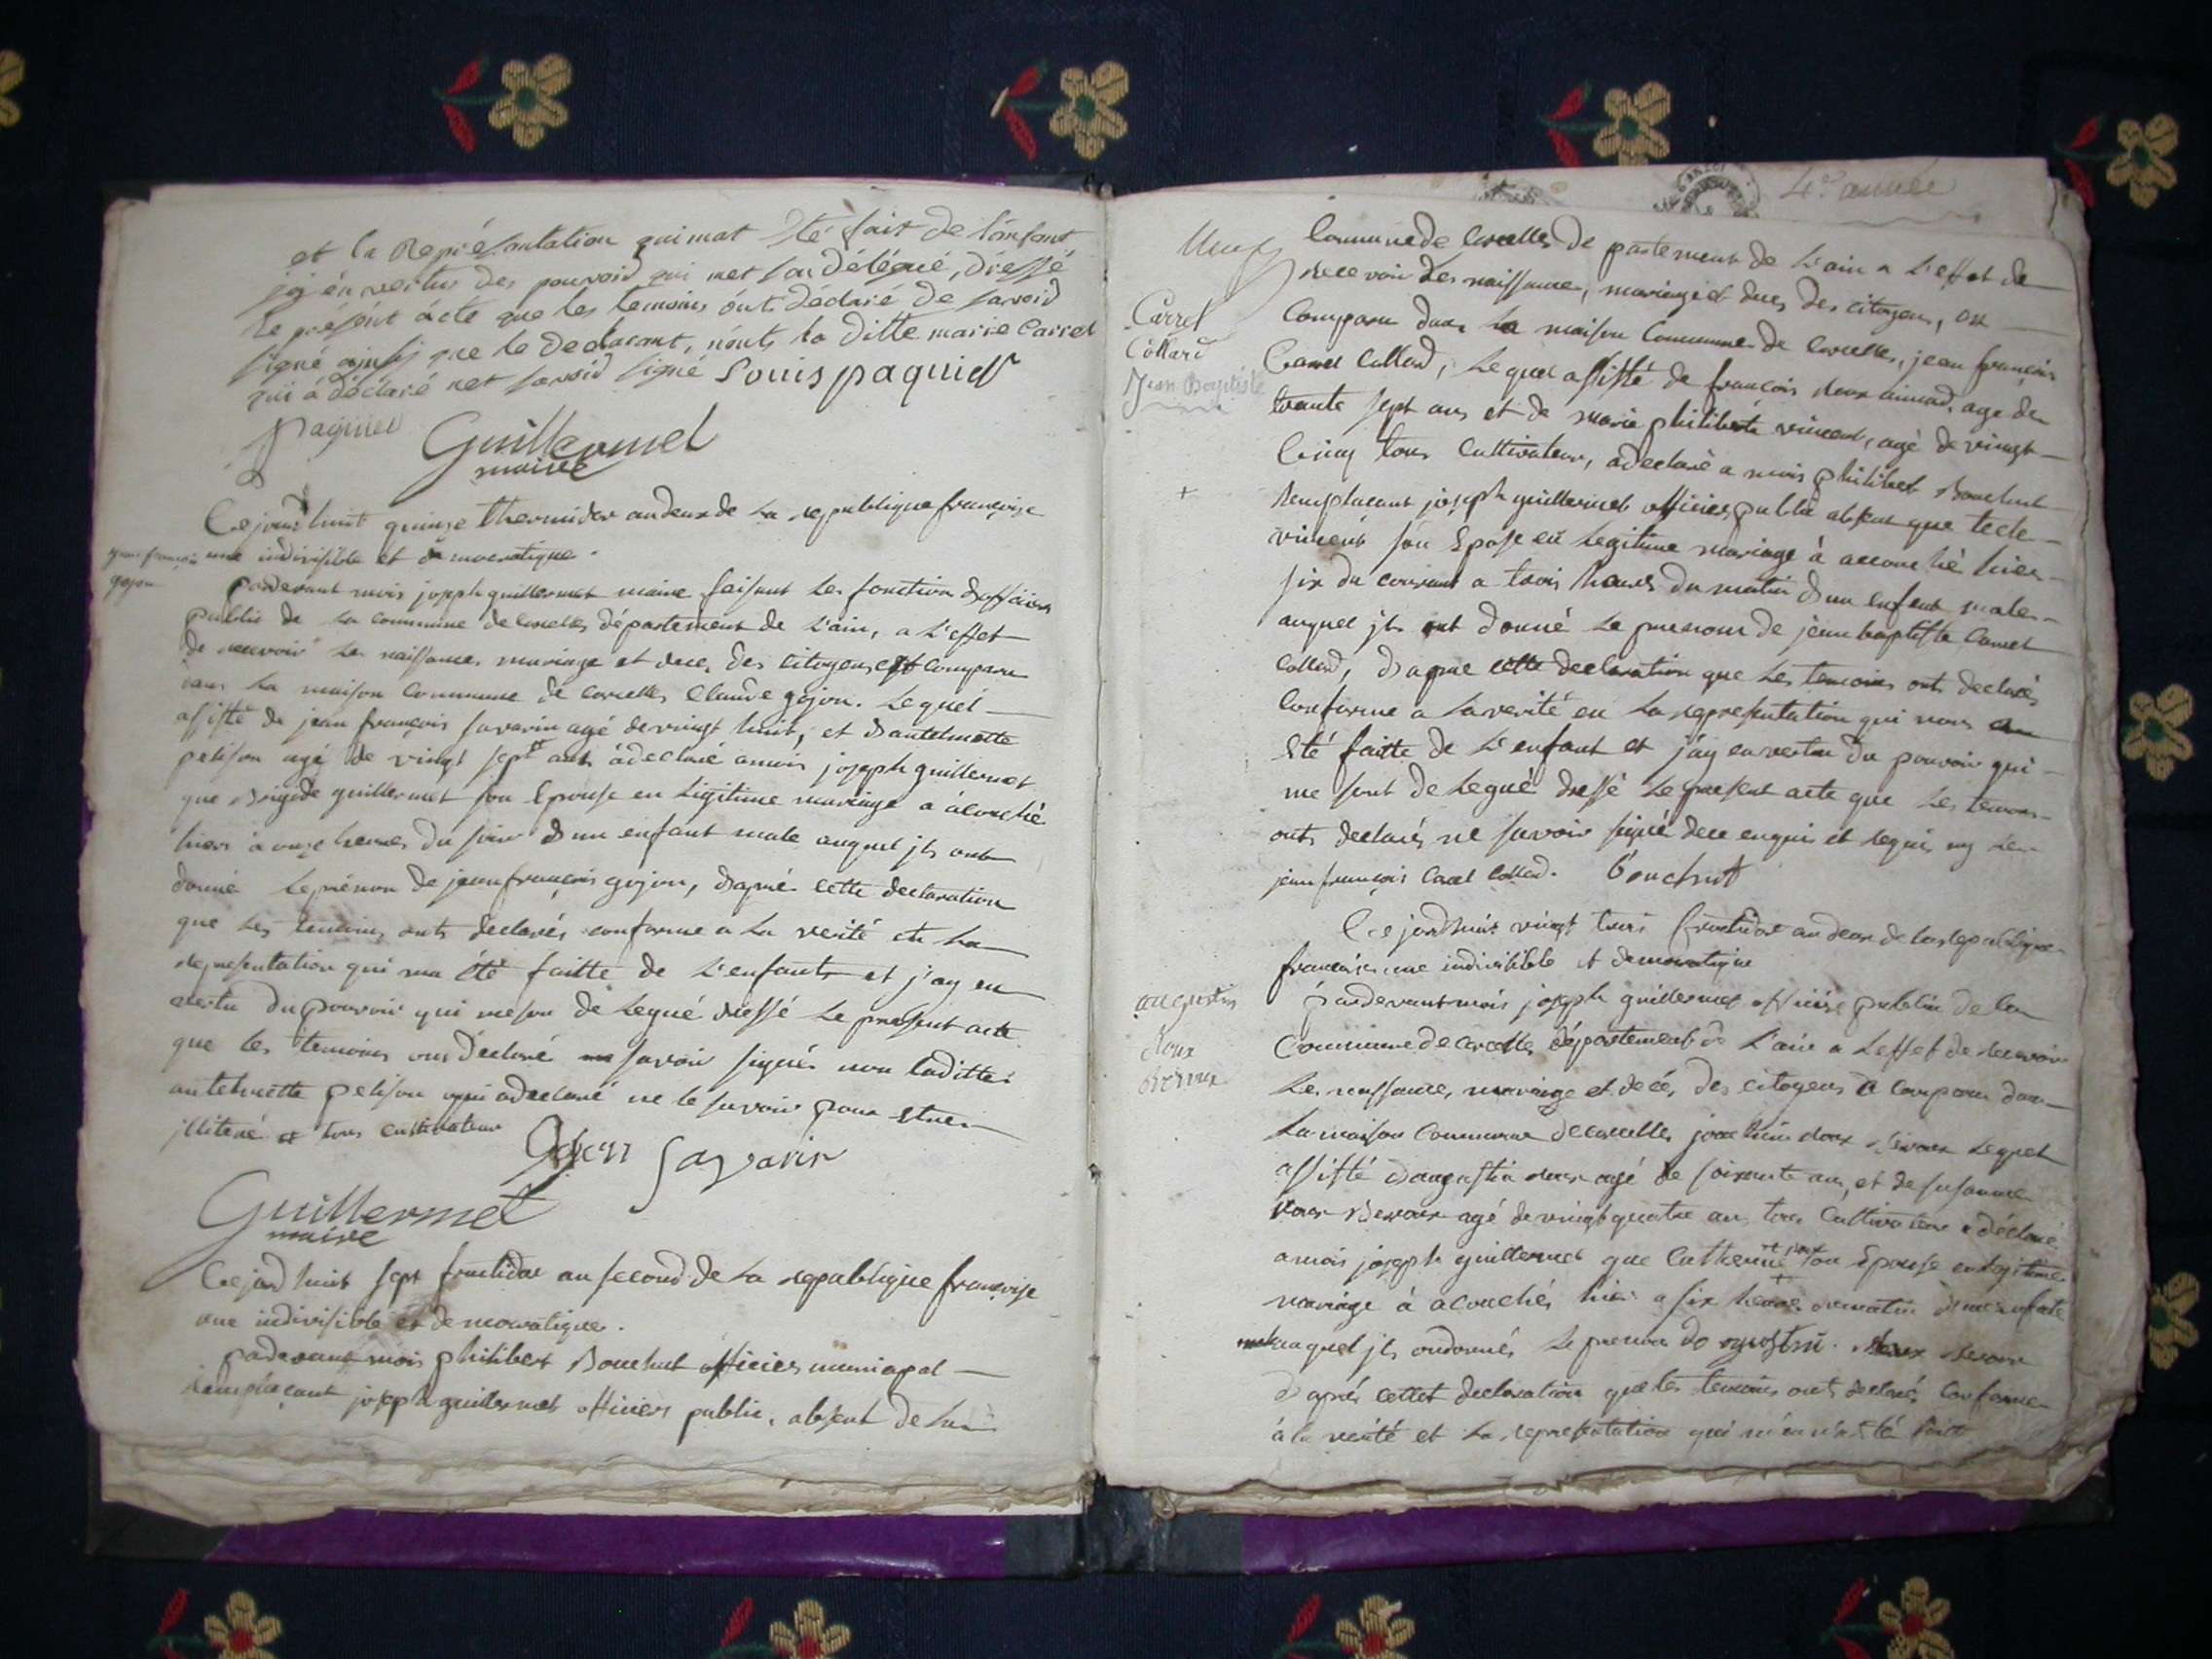 et la Représantation qui mat été fait de l'anfant
jéj én vertus des pouvoid qui met son délégué, dressé
le présént ácte que les temoins ónt déclaré de savoid
signé ainssj que le declarant, nónts la ditte marie Carrel
qui á déclaré net savoid signé Louis paquiet
paquiet Guillermet
maire
Ce jourdhuit quinze thermidor an deux de la republique françoise
jean françois une indivisible et démocratique.
gojon
pardevant mois joseph guillermet maire faisant les fonction d'officier
public de la commune de corcelles département de l'ain, a l'effet
de recevoir les naissances mariage et dece, des citogens est comparu
dans la maison commune de corcelles Claude gojon. Lequel
assisté de jean françois savarin agé de vingt huit, et d'antelmette
pelison agé de vingt sept ans á declaré a mois joseph guillermet
que Brigide guillermet son Epouse en ligitime mariage a álouché
hier à onze heures du soir d'un enfant male auquel jls ont
donné le prénom de jean françois gojon, d'apré cette declaration
que les temoins onts declarés conforme a la verité et la
representation qui ma été faitte de l'enfants et j'ay en
vertu du pouvoir qui me son de legué dressé le present acte
que les temoins ons déclaré savoir signés non laditte
antelmette pelison qui a declaré ne le savoir pour etre
jlliteré et tous cultivateur
Gojon Savarin
Guillermet
maire
Ce jord huit sept fructidor an second de la republique françoise
une indivisible et democratique.
pardevant mois philibert Bouchut officier municipal
remplaçant joseph guillermet officiers public, absent de la
4e année
Commune de corcelles de partement de l'ain a l'effet de
recevoir les naissance, mariage et dues des citogens, est
Carrel
Collard
Jean Baptiste
comparu dans la maison commune de corcelles, jean françois
Carrel Collard, Lequel assisté de françois roux aimad, age de
trante sept ans et de marie philiberte vincent, agé de vingt
Cinq tous cultivateur, a declaré a mois philibert Bouchut
remplacant joseph guillermet officier public absent que tecle
vincent son Epose en legitime mariage à acouché hier
six du courant a trois heures du matin d'un enfent male
auquel jls ont donné le prenom de jean baptiste Carrel
Collard, d'apré cette declaration que les temoins onts declarés
Conforme a la verité en la representation qui nous
été faitte de l'enfant et j'ay en vertu du pouvoir qui
me sont de legué dressé le present acte que les temoins
onts declarés ne savoir signé
jean françois Carrel Collard. Bouchut
Ce jordhuit vingt trois fructidor an deux de la republique
francoise une indivisible et democratique
augustin
Roux
pardevant mois joseph guillermet officier public de la
Commune de corcelles département de l'ain a l'effet de recevoir
les naissance, mariage et decé, des citogens a comparu dans
la maison commune de corcelles Roux lequel
assisté d'augustin roux agé de soixante ans, et de susanne
roux agé de vingt quatre ans tous cultivateur a déclaré
a mois joseph guillermet que Catherine son Epouse en legitime
mariage à acouchés hier a six heures du matin d'un enfant
male auquel jls on donnés le prenom de Roux
d'aprés cettet declaration que les temoins onts declarés conforme
à la verité et la representation qui été faitte